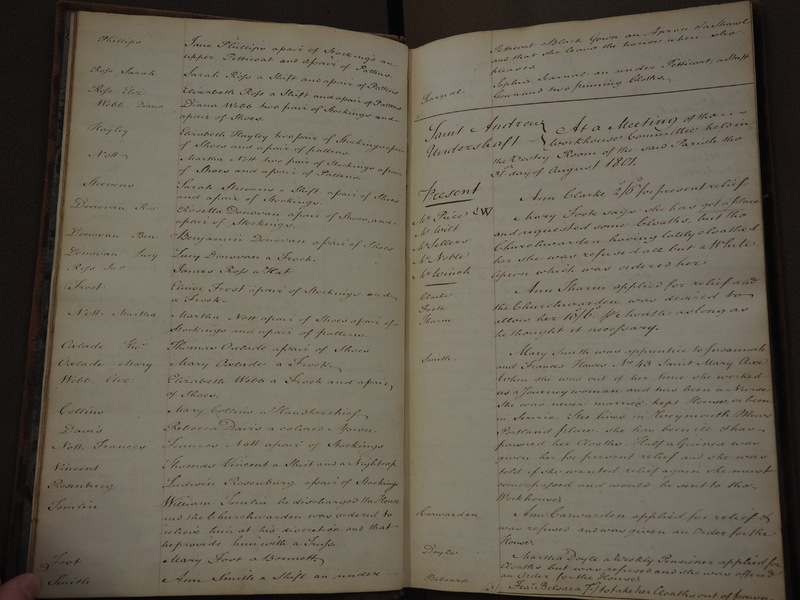 Phillips Jane Phillips a pair of Stockings an
upper Petticoat and a pair of Pattens.
Ross Sarah Sarah Ross a Shift and a pair of Pattens
Ross Eliz: Elizabeth Ross a Shift and a pair of Pattens
Webb Diana Diana Webb two pair of Stockings and
a pair of Shoes.
Hayley Elizabeth Hayley two pair of Stockings a pair
of Shoes and a pair of pattens.
Nott Martha Nott two pair of Stockings a pair
of Shoes and a pair of Pattens.
Stevens Sarah Stevens a Shift a pair of Shoes
and a pair of Stockings.
Donovan Ros Rosetta Donovan a pair of Shoes, and
a pair of Stockings.
Donovan Ben Benjamin Donovan a pair of Shoes
Donovan Lucy Lucy Donovan a Frock.
Ross Jas James Ross a Hat
Frost Frost a pair of Stockings and
a Frock.
Nott Martha Martha Nott a pair of Shoes a pair of
Stockings and a pair of pattens.
Thomas a pair of Shoes
Mary Mary a Frock
Webb Eliz: Elizabeth Webb a Frock and a pair
of Shoes.
Collins Mary Collins a Handkerchief
Davis Rebecca Davis a colored Apron.
Nott Frances Frances Nott a pair of Stockings
Vincent Thomas Vincent a Shirt and a Nightcap
Rosenburg Rosenburg a pair of Stockings
Tomlin William Tomlin be discharged the House
and the Churchwarden was ordered to
relieve him at his discretion and that
he provide him with a Truss.
Foot Mary Foot a Bonnett
Smith Ann Smith a Shift an under
Petticoat a Black Gown an Apron a Shawl
and that she leave the house when she
pleased
Sophia an under Petticoat a Stuff
Gown and two Cloths.
Saint Andrew Undershaft
At a Meeting of the
Workhouse Committee held in
the Vestry Room of the said Parish the
31st day of August 1801.
Present
Mr Price CW
Mr Wilt
Mr Sellers
Mr Noble
Mr Winch
Clarke Ann Clarke 2/6 for present relief
Foote Mary Foote says she has got a place
and requested some Cloaths, but the
Churchwarden having lately cloathed
her she was refused all but a White
Apron which was ordered her.
Tharm Ann Tharm applied for relief and
the Churchwarden was desired to
allow her 10/6 pr Month as long as
he thought it necessary.
Smith Mary Smith was apprentice to Susannah
and Frances Hawes No 43 Saint Mary Axe
When she was out of her time she worked
as a Journeywoman and has been a Nurse
She was never married, kept House, or been
in Service. She lives in Weymouth Mews
Portland place. She has been ill & has
pawned her Cloaths. Half a Guinea was
given her for present relief and she was
told if she wanted relief again she must
come passed and would be sent to the
Workhouse.
Carwarden Ann Carwarden applied for relief &
was refused and was given an Order for the
House.
Doyle Martha Doyle a Weekly Pensioner applied for
Cloaths but was refused and she was offered
an Order for the House.
Belsara Belsara 7/ to take her Cloaths out of pawn.